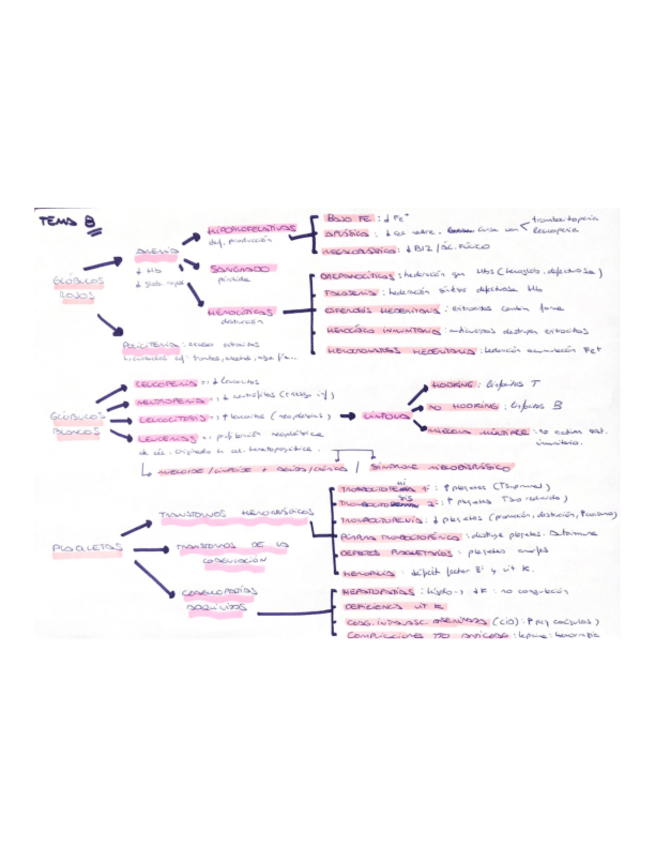 TEMA 8
GLÓBULOS
ROJOS
ANEMIA
↓ Hb
↓ glob. rojos
HIPOPROLIFERATIVAS
def. producción
BAJO FE : ↓ Fe+
APLÁSICA : ↓ cel. madre. cursa con < trombocitopenia
leucopenia
MEGALOBLÁSTICA : ↓ B12 / ÁC. FÓLICO
SANGRADO
pérdida
HEMOLÍTICAS
destrucción
DREPANOCÍTICAS : hederación gen
TALASEMIA : hederación síntesis defectuosa Hb
ESFEROSIS HEREDITARIA : eritrocitos cambian forma
HEMOLÍTICA INMUNITARIA : anticuerpos destruyen eritrocitos
HEMOCROMATOSIS HEREDITARIA : hederación acumulación Fe+
POLICITEMIA : exceso eritrocitos
GLÓBULOS
BLANCOS
LEUCOPENIA → ↓ leucocitos
NEUTROPENIA → ↓ neutrófilos (riesgo inf)
LEUCOCITOSIS → ↑ leucocitos (neoplasias)
LEUCEMIAS → proliferación neoplásica
de cél. originada en cel. hematopoyética.
LINFOMA
HODKING : linfocitos T
NO HODKING : linfocitos B
MIELOMA MÚLTIPLE : no activan
inmunitario.
↳ MIELOIDE / LINFOIDE + AGUDA / CRÓNICA / SÍNDROME MIELODISPLÁSICO
PLAQUETAS
TRANSTORNOS HEMORRÁGICOS
TRANSTORNOS DE LA
COAGULACIÓN
COAGULOPATÍAS
ADQUIRIDAS
1ª : ↑ plaquetas
2ª : ↑ plaquetas
TROMBOCITOPENIA : ↓ plaquetas (producción, destrucción, ↑consumo)
PÚRPURA TROMBOCITOPÉNICA : destruye plaquetas. Autoinmune
DEFECTOS PLAQUETARIOS : plaquetas
HEMOFILIA : déficit factor 8 y vit K.
HEPATOPATÍAS : hígado → ↓K : no coagulación
DEFICIENCIA VIT K
COAG. INTRAVASC. DISEMINADA (CID) : ↑ peq coágulos)
COMPLICACIONES TTO ANTICOAG : heparina : hemorragia